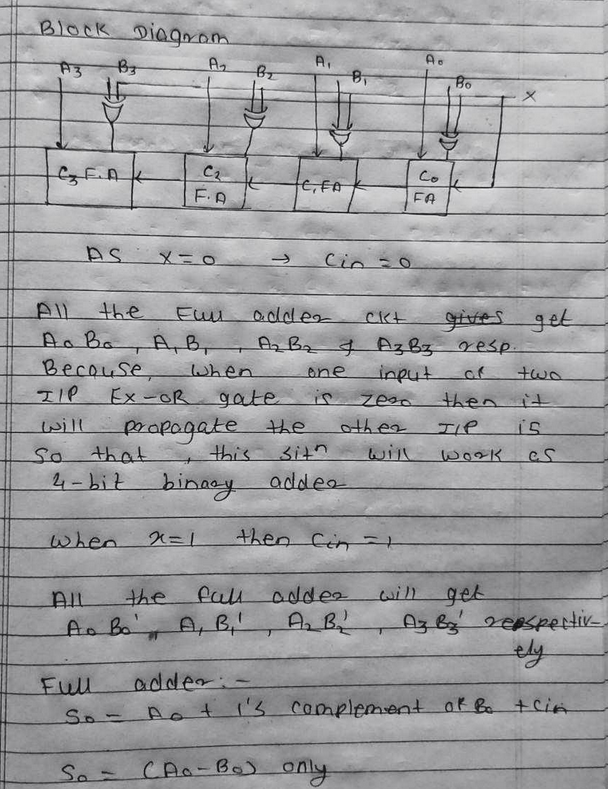 Block Diagram
A3 B3 A2 B2 A1 B1 A0 B0
X
C3 F.A C2 F.A C1 FA C0 FA
AS x=0 → Cin = 0
All the Full adder ckt gives get
A0 B0 , A1 B1 , A2 B2 & A3 B3 resp.
Because, when one input of two
I/P EX-OR gate is zero then it
will propagate the other I/P is
So that , this sitn will work as
4-bit binary adder
when x=1 then Cin = 1
All the full adder will get
A0 B0' , A1 B1' , A2 B2' , A3 B3' respectiv-
ely
Full adder:-
S0 = A0 + 1's complement of B0 + Cin
S0 = (A0 - B0) only